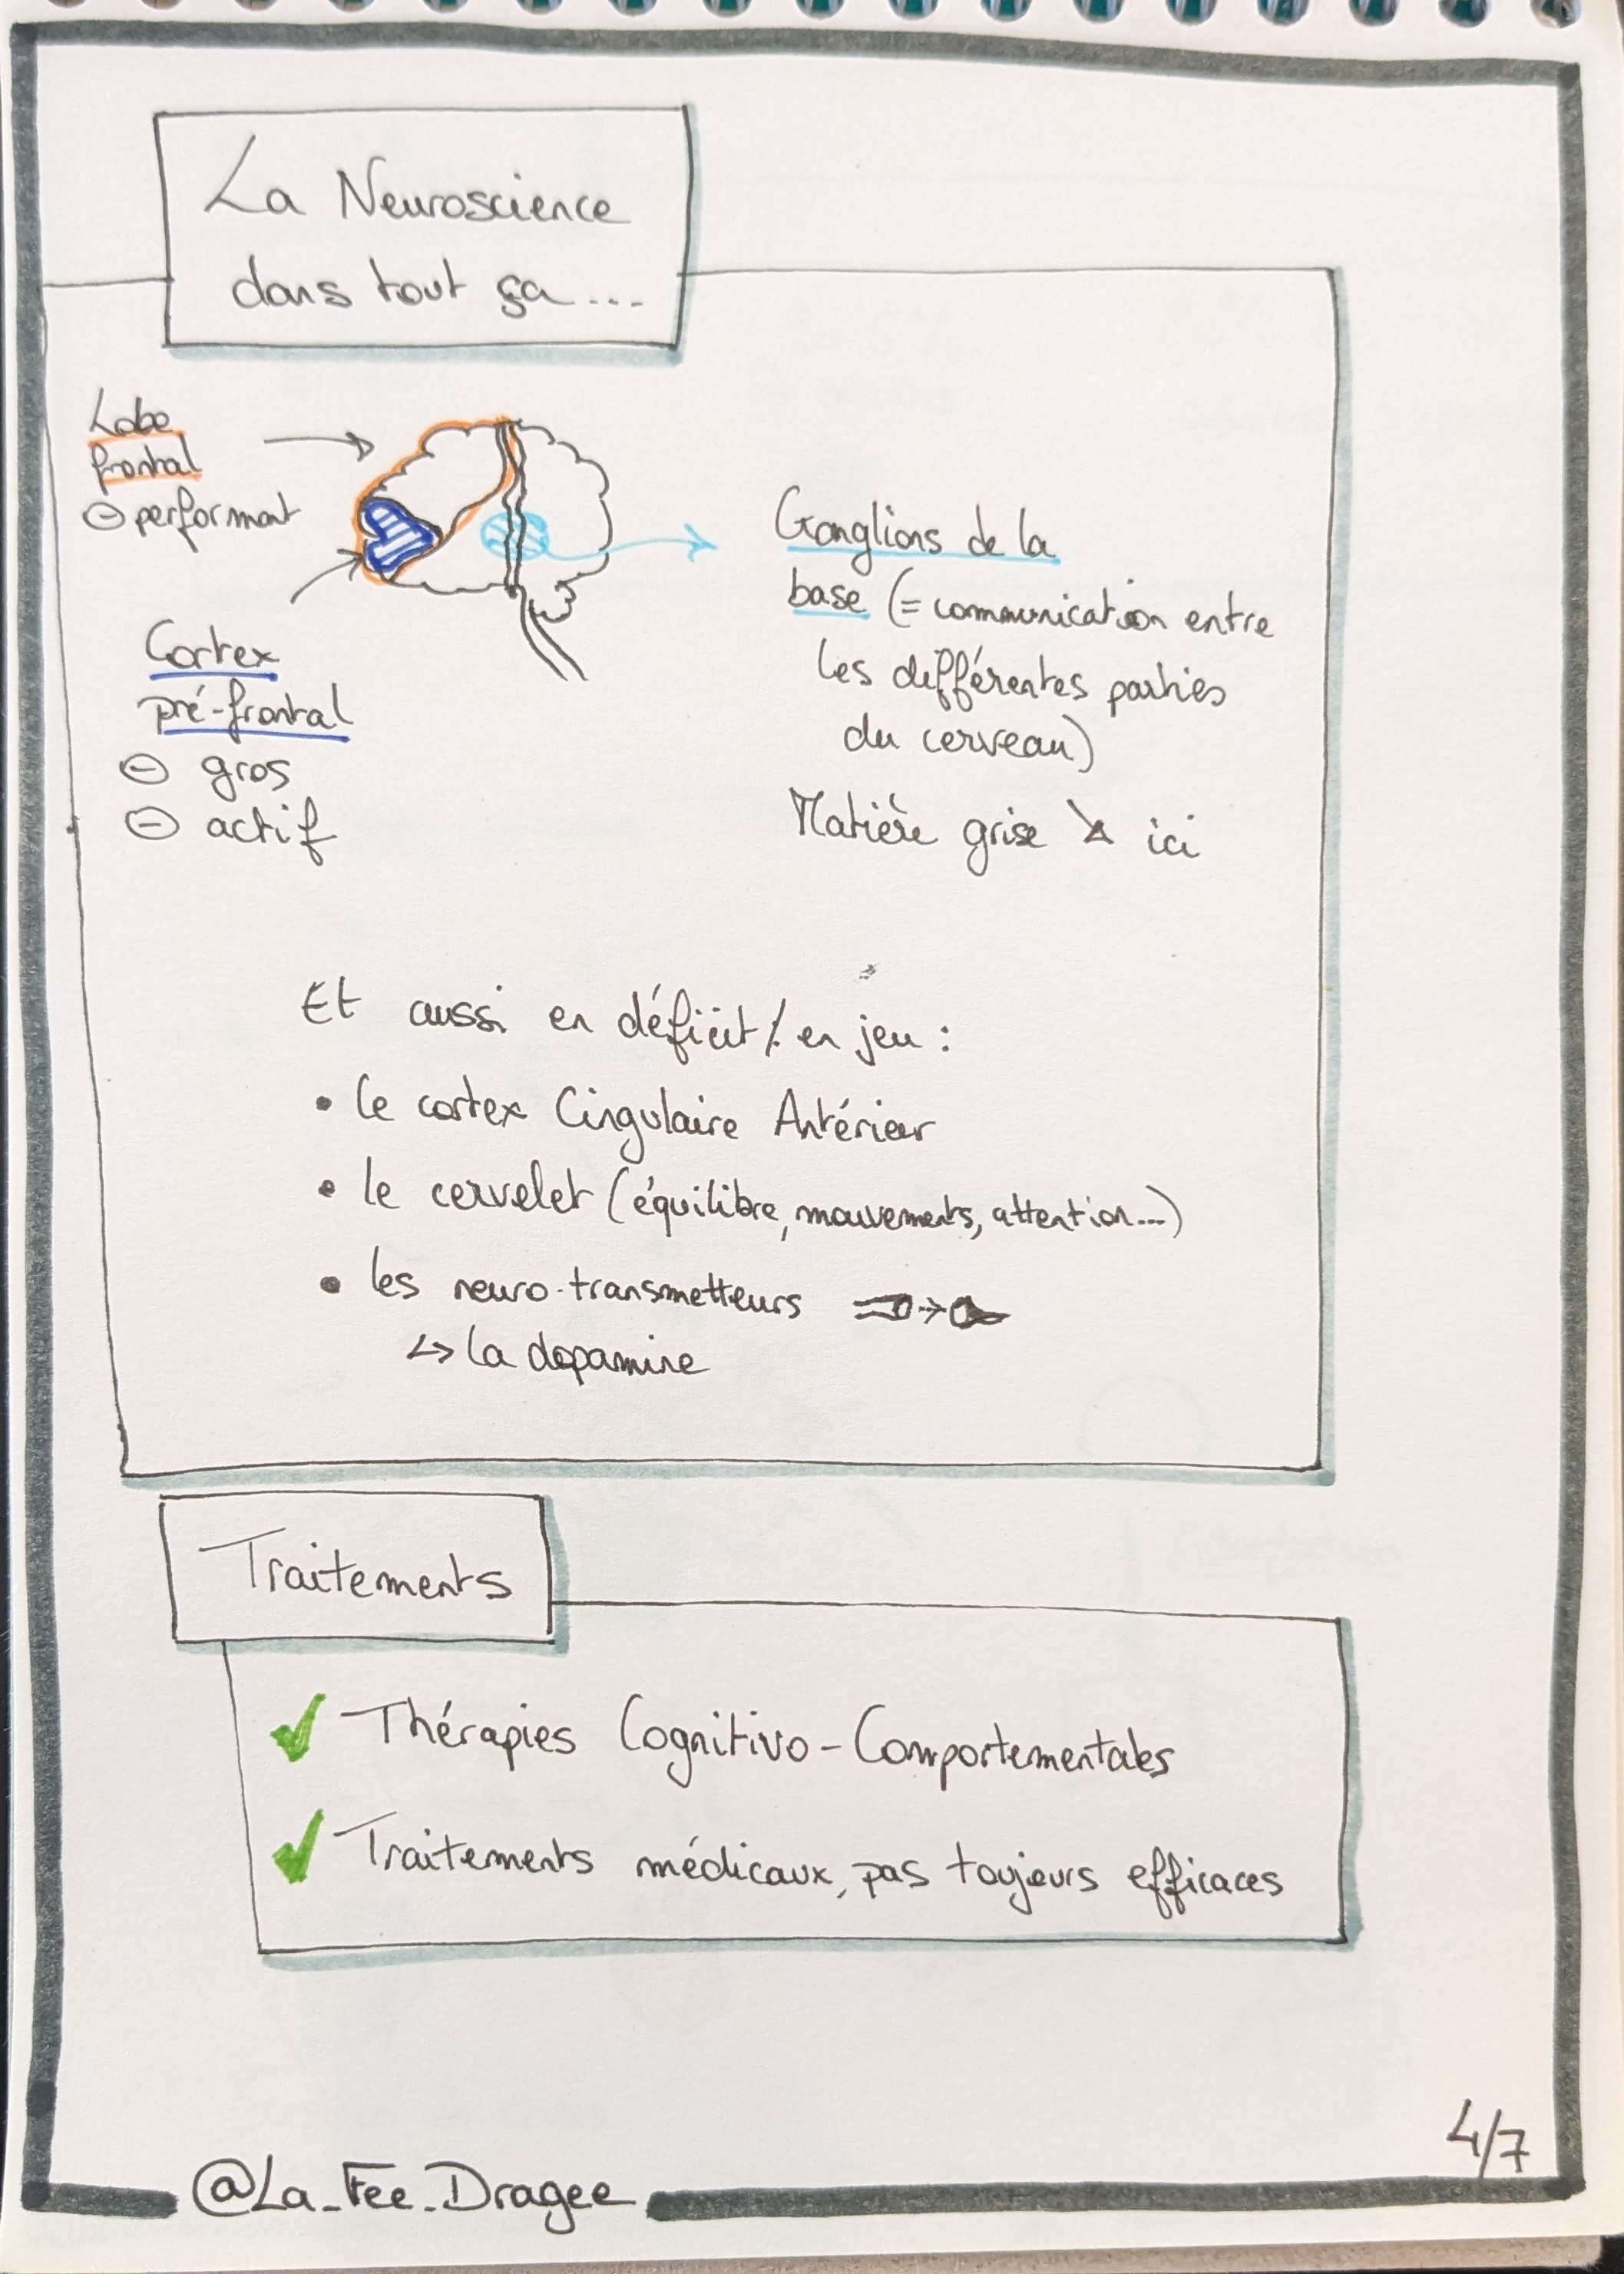 La Neuroscience
dans tout ça...
Lobe
frontal
⊖ performant
Cortex
pré-frontal
⊖ gros
⊖ actif
Ganglions de la
base (= communication entre
les différentes parties
du cerveau)
Matière grise ↘ ici
Et aussi en déficit / en jeu :
• le cortex Cingulaire Antérieur
• le cervelet (équilibre, mouvements, attention...)
• les neuro-transmetteurs
↳ la dopamine
Traitements
✓ Thérapies Cognitivo-Comportementales
✓ Traitements médicaux, pas toujours efficaces
4/7
@La_Fee_Dragee